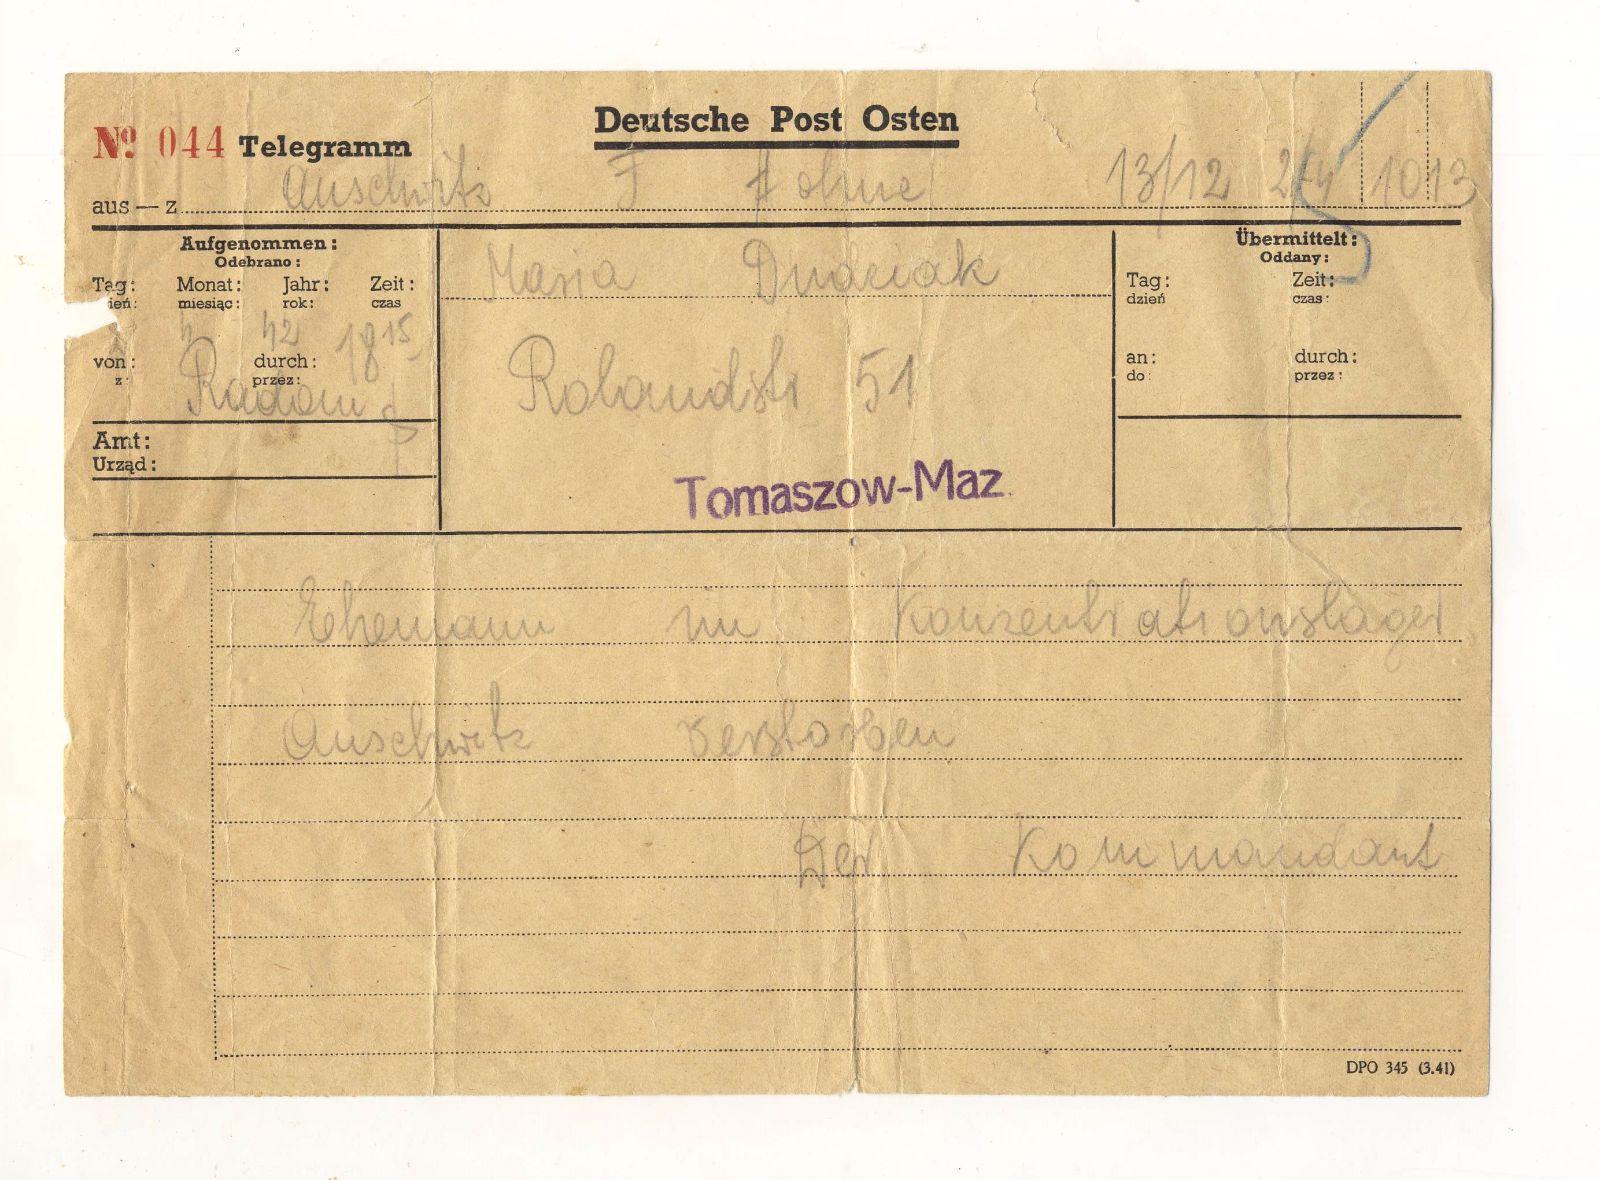 Deutsche Post Osten
№ 044 Telegramm
aus — z Auschwitz F # ohne 13/12 2/4 1013
Aufgenommen:
Odebrano:
Tag: Monat: Jahr: Zeit:
dzień: miesiąc: rok: czas
4 42 18 15
von: durch:
z: przez:
Radom
Amt:
Urząd:
Maria Dudciak
Rolandstr 51
Tomaszow-Maz.
Übermittelt:
Oddany:
Tag: Zeit:
dzień czas:
an: durch:
do: przez:
Ehemann im Konzentrationslager
Auschwitz verstorben
Der Kommandant
DPO 345 (3.41)